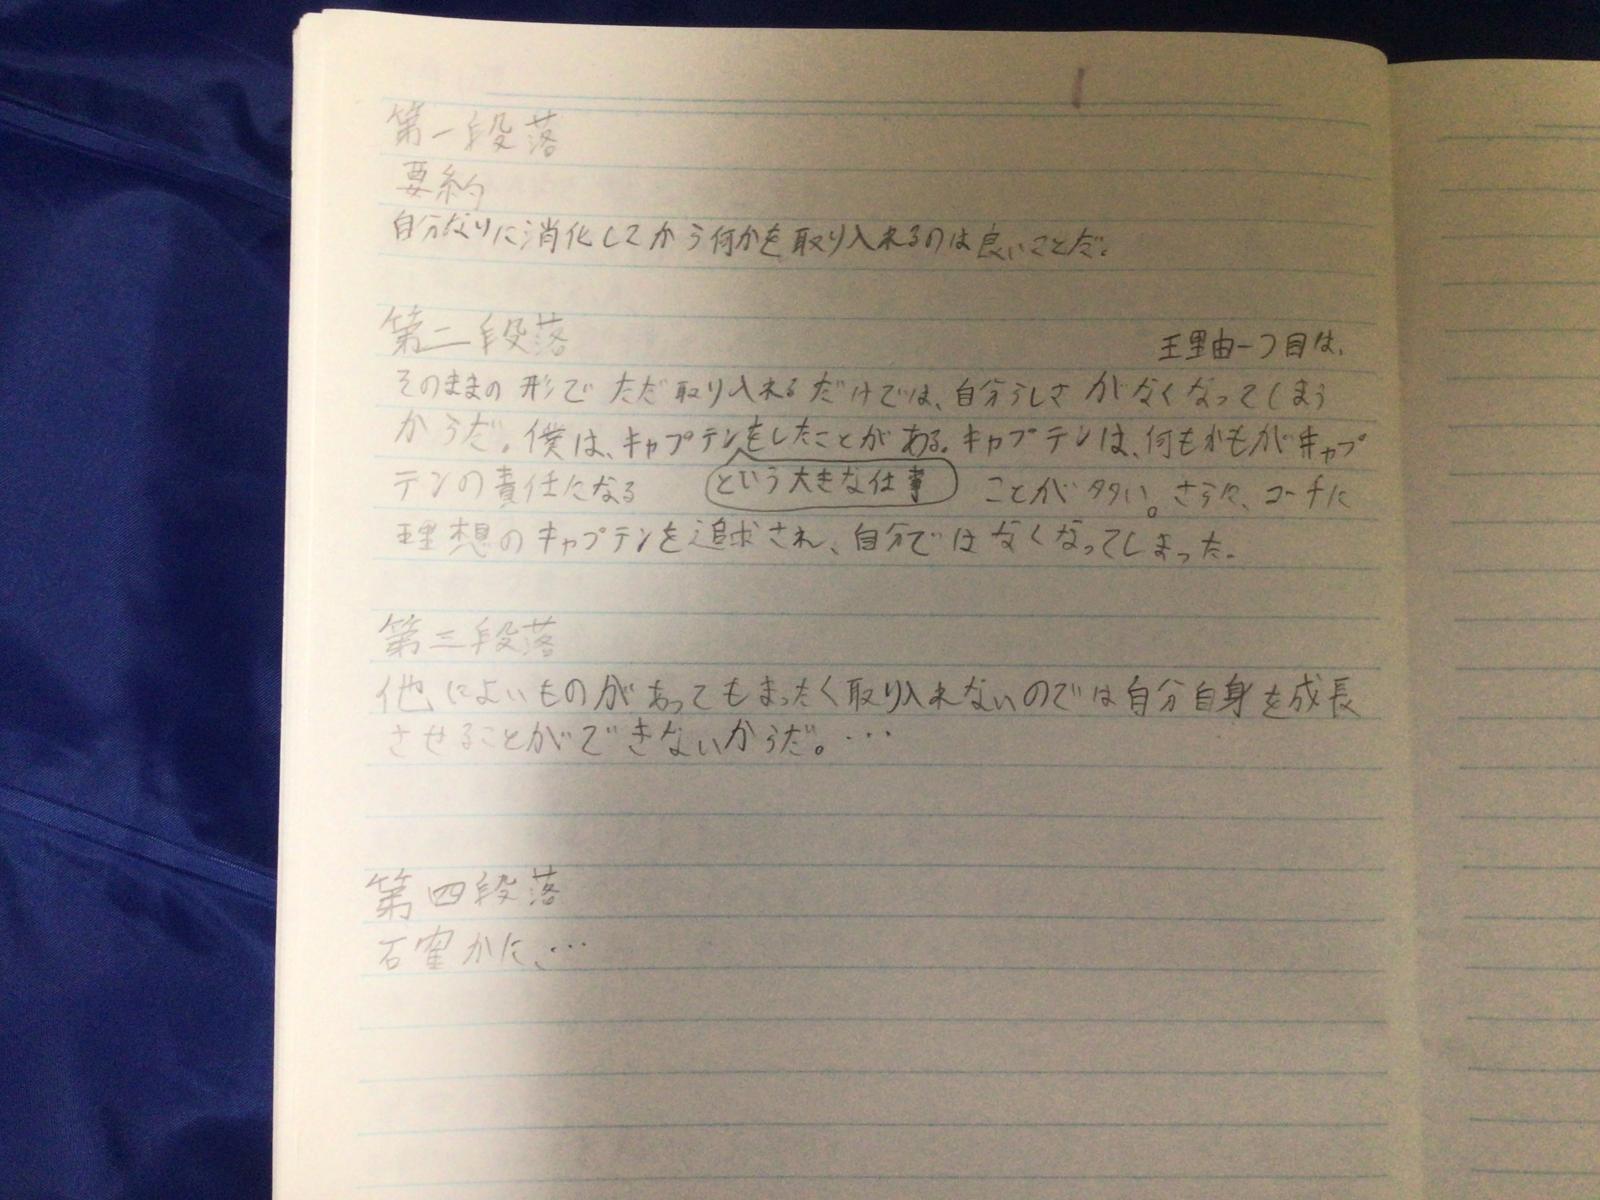 第一段落
要約
自分なりに消化してから何かを取り入れるのは良いことだ。
第二段落
理由一つ目は、
そのままの形でただ取り入れるだけでは、自分らしさがなくなってしまう
からだ。僕は、キャプテンをしたことがある。キャプテンは、何もかもがキャプ
テンの責任になる
という大きな仕事
ことが多い。さらに、コーチに
理想のキャプテンを追求され、自分ではなくなってしまった。
第三段落
他によいものがあってもまったく取り入れないのでは自分自身を成長
させることができないからだ。…
第四段落
確かに、…